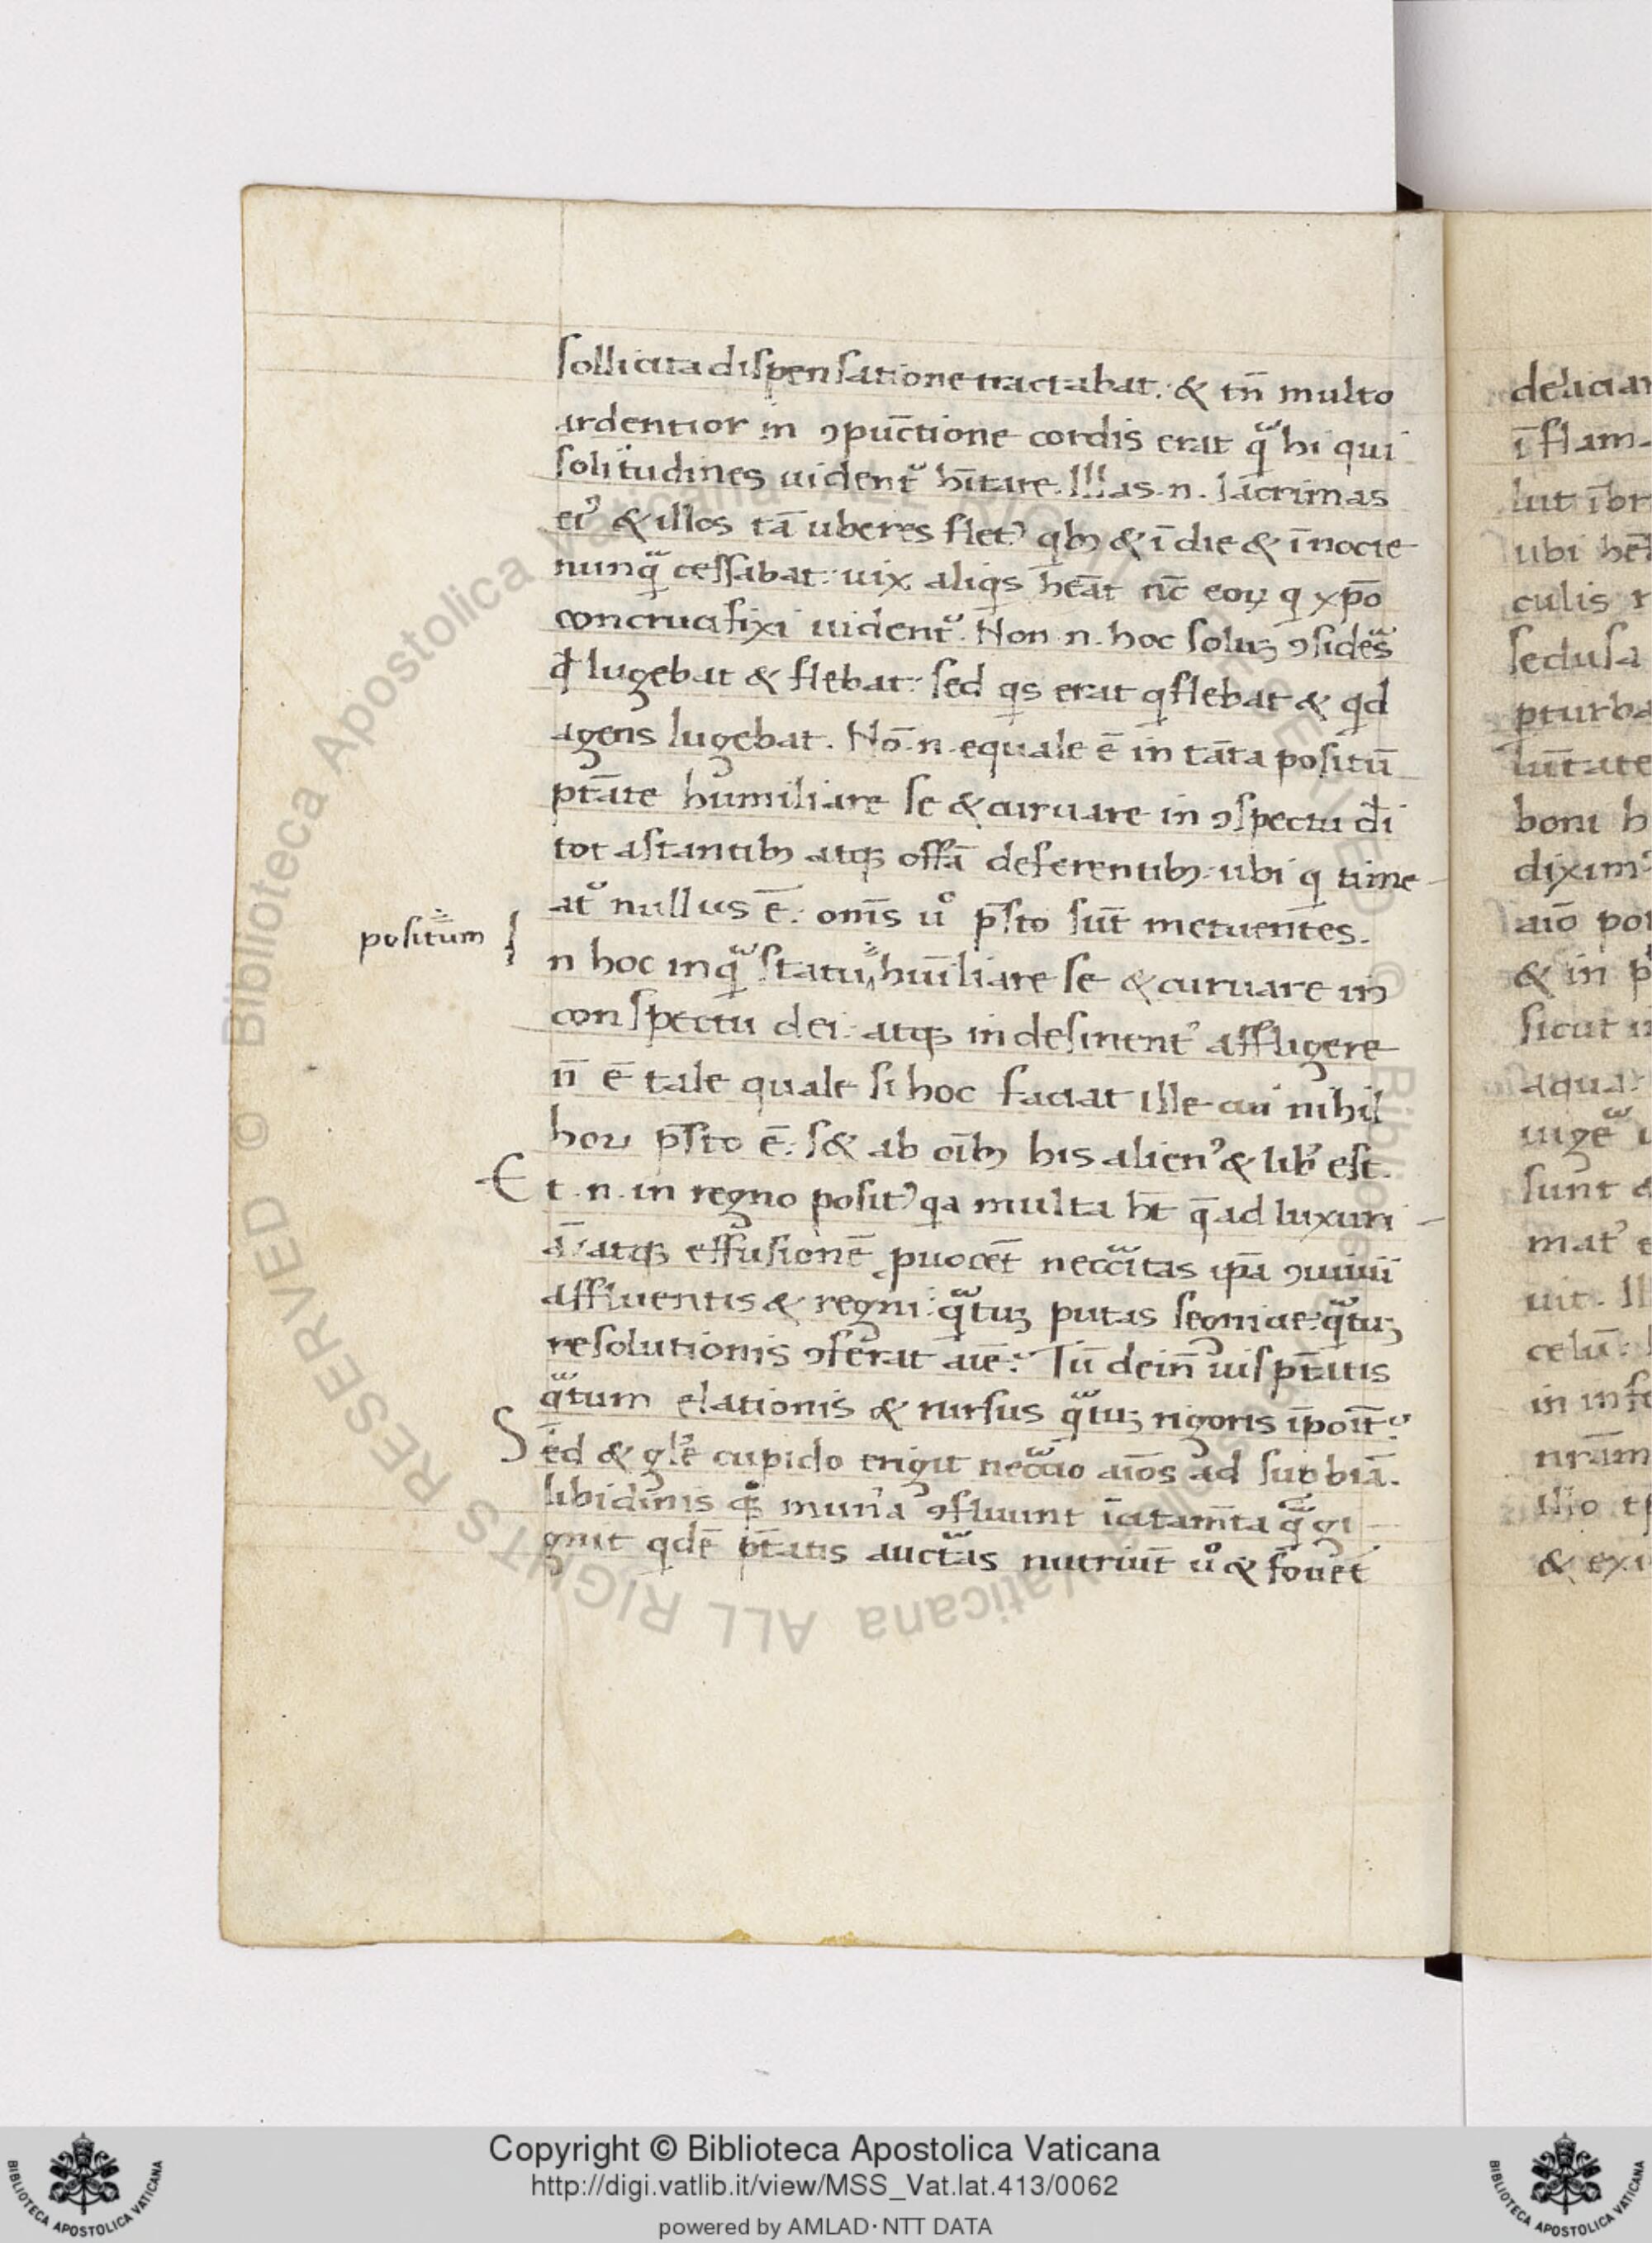 sollicita dispensatione tractabat. & tn̄ multo
ardentior in ꝯpūctione cordis erat qͣ hi qui
solitudines uident᷑ hītare. Illas .n. lacrimas
eiꝰ & illos tā uberes fletꝰ qbꝫ & ī die & ī nocte
nunqͣ cessabat: uix aliqs hēat nc̄ eoꝝ q xp̄o
concrucifixi uident᷑. Non .n. hoc soluꝫ ꝯsideͣs
qđ lugebat & flebat: sed qs erat q flebat & qd
agens lugebat. Nō .n. equale ē in tāta positū
ptāte humiliare se & curuare in ꝯspectu dī
tot astantibꝫ atqꝫ offā deferentibꝫ: ubi q time-
at᷑ nullus ē: om̄s uͦ p̄sto sūt metuentes.
positum
n hoc inqͣ statu huīliare se & curuare in
conspectu dei: atqꝫ indesinentꝰ affligere
n̄ ē tale quale si hoc faciat ille cui nihil
hoꝝ p̄sto ē: s& ab oībꝫ his alienꝰ & libꝰ est.
Et .n. in regno positꝰ qa multa ht̄ q̄ ad luxuri-
ā atqꝫ effusionē ꝓuocēt necc̄itas ip̄a ꝯuiuii
affluentis & regni: qͣtuꝫ putas segnicie: qͣtuꝫ
resolutionis ꝯferat aīe? Tū dein̄ uis pt̄atis
qͣtum elationis & rursus qͣtuꝫ rigoris īpoīt?
Sed & glē cupido erigit necc̄io aīos ad suꝑbiā.
libidinis qꝫ munꝰa ꝯfluunt īcitam̄ta qͣ gi-
gnit qdē pt̄atis auctͣas nutriūt uͦ & fouēt
deliciar
ī flam-
lut ībr
ubi hē
culis r
sed usa
pturba
lūtate
boni h
diximꝰ
aīo po
& in p
sicut i
aqua.
uigēͣ
sunt &
matꝰ e
uit. Il
celū:
in inf
nrām
illo t
& ex
Copyright © Biblioteca Apostolica Vaticana
http://digi.vatlib.it/view/MSS_Vat.lat.413/0062
powered by AMLAD·NTT DATA
BIBLIOTECA APOSTOLICA VATICANA
BIBLIOTECA APOSTOLICA VATICANA